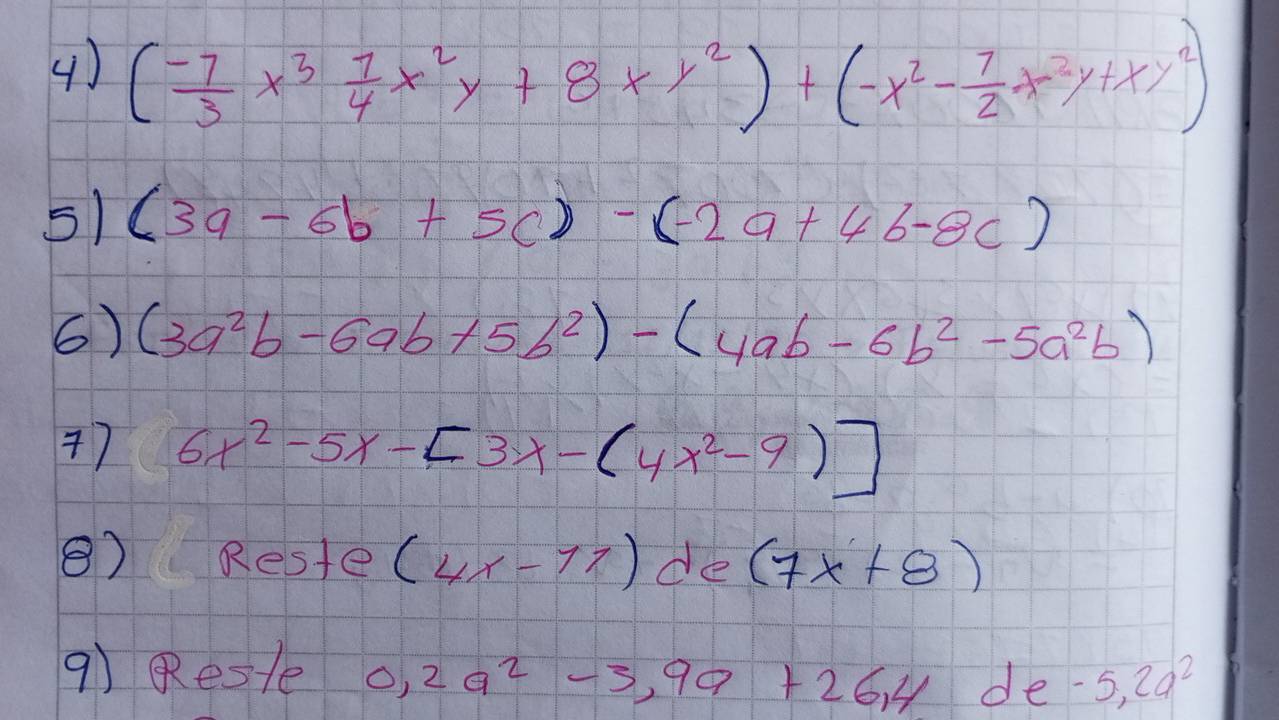 4) (-7/3 x³ 7/4 x² y + 8 x y²) + (-x² - 7/2 x²y + xy²)
5) (3a - 6b + 5c) - (-2a + 4b - 8c)
6) (3a²b - 6ab + 5b²) - (4ab - 6b² - 5a²b)
7) 6x² - 5x - [3x - (4x² - 9)]
8) Reste (4x - 11) de (7x + 8)
9) Reste 0,2a² - 3,9a + 26,4 de -5,2a²